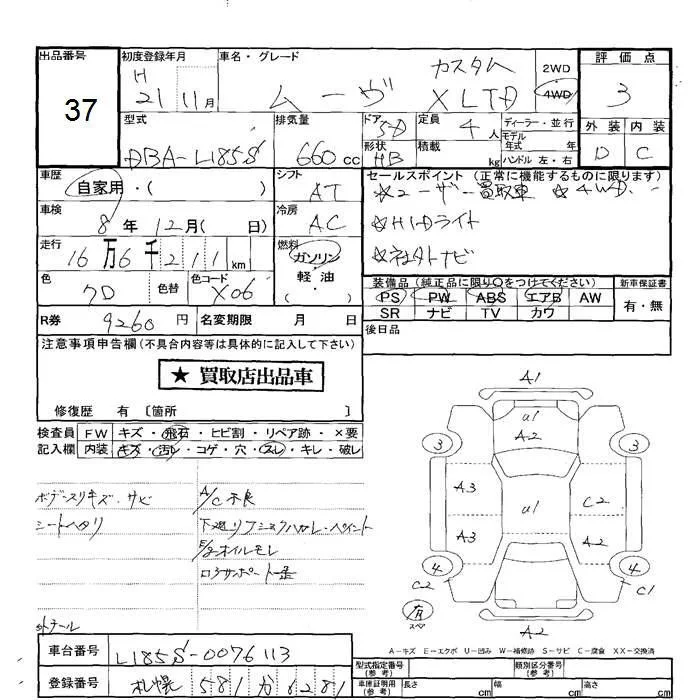 出品番号
37
初度登録年月
H 21 11月
車名・グレード
ムーヴ
カスタム
X LTD
2WD
4WD
評価点
3
外装 内装
D C
型式
DBA-L185S
排気量
660 cc
ドア
5D
形状
HB
定員
4人
積載
kg
ディーラー・並行
モデル年式 年
ハンドル 左・右
車歴
自家用・( )
シフト
AT
セールスポイント (正常に機能するものに限ります)
☆ユーザー買取車 ☆4WD.
☆HIDライト
☆社外ナビ
車検
8年12月( 日)
冷房
AC
走行
16万6千211km
燃料
ガソリン
軽・油
( ・ )
色
色替
色コード
X06
装備品(純正品に限り○をつけてください)
PS PW ABS エアB AW
SR ナビ TV カワ
新車保証書
有・無
R券
9260円
名変期限 月 日
後日品
注意事項申告欄(不具合内容等は具体的に記入して下さい)
★ 買取店出品車
修復歴 有〔箇所 〕
検査員 FW キズ・飛石・ヒビ割・リペア跡・×要
記入欄 内装 キズ・汚レ・コゲ・穴・スレ・キレ・破レ
ボデースリキズ、サビ
シートヘタリ
A/C不良
E/gオイルモレ
A1
U1
A2
3
3
A3
U1
C2
A3
A2
4
4
C2
C1
有
スペア
A2
A-キズ E-エクボ U-凹み W-補修跡 S-サビ C-腐食 XX-交換済
車台番号
L185S-0076113
登録番号
札幌 581 か 8281
型式指定番号(参考)
類別区分番号(参考)
車庫証明用(参考)
長さ cm 幅 cm 高さ cm